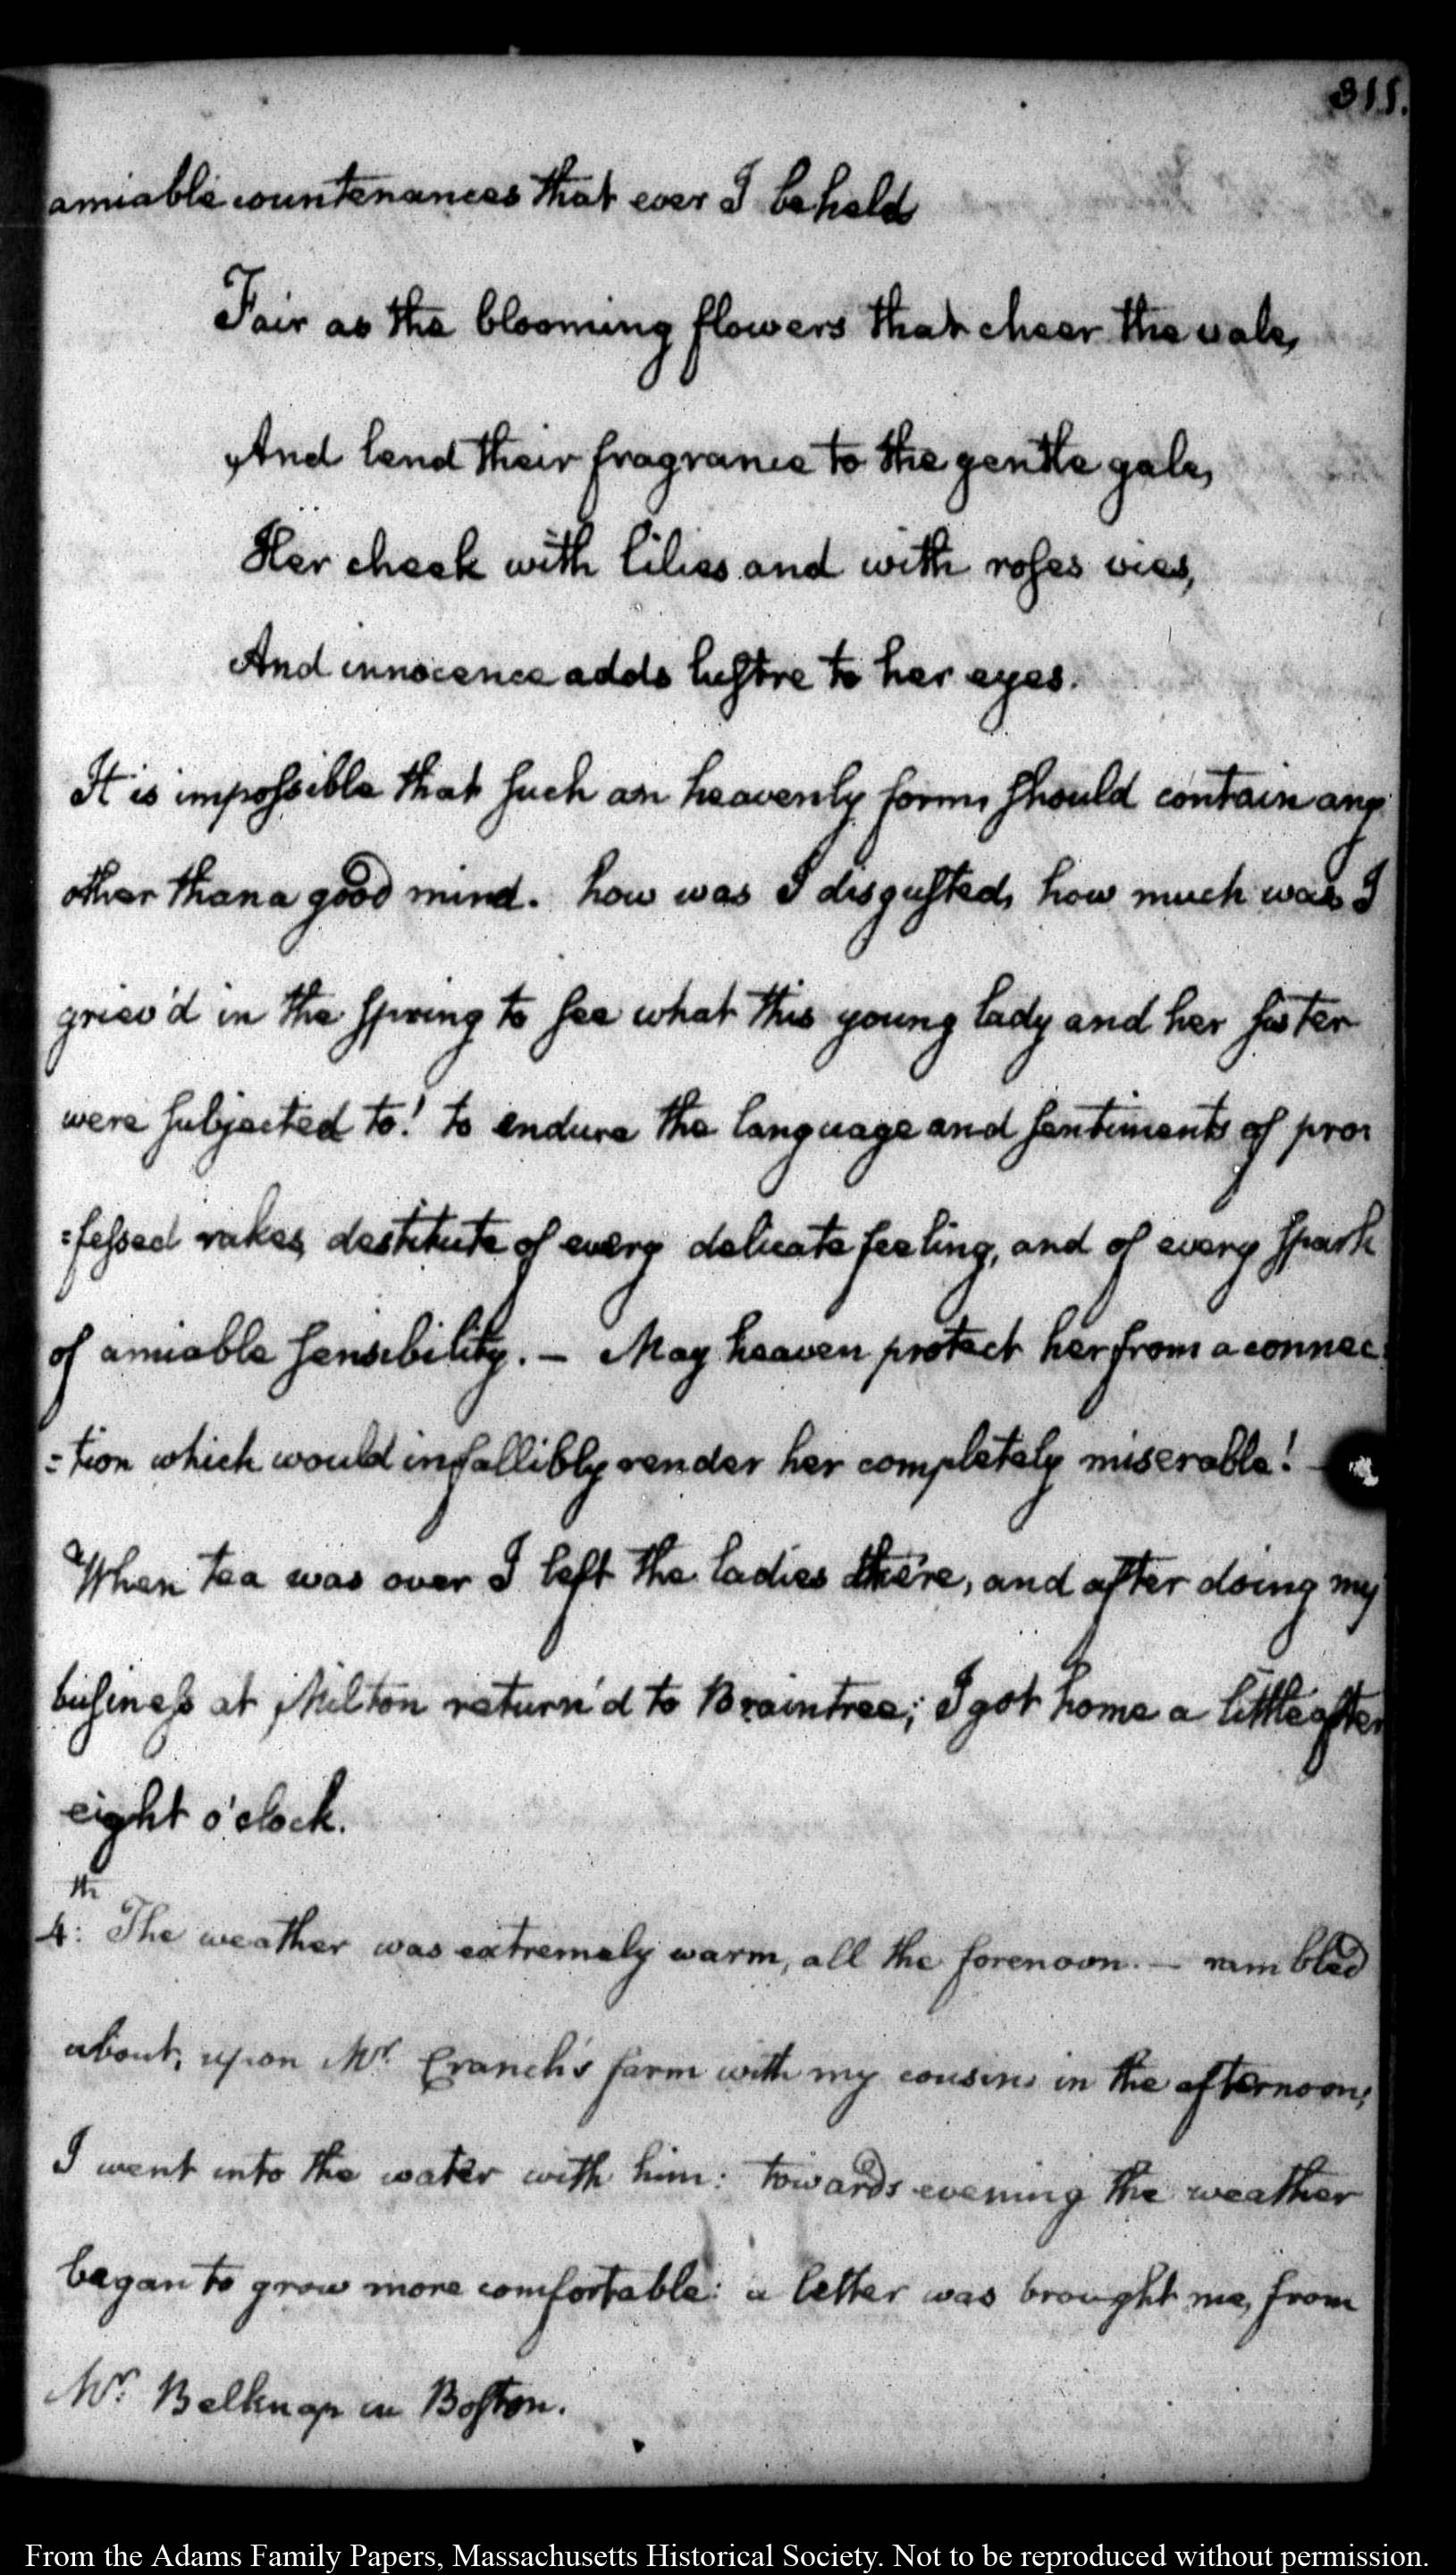 311.
amiable countenances that ever I beheld
Fair as the blooming flowers that cheer the vale,
And lend their fragrance to the gentle gale,
Her cheek with lilies and with roſes vies,
And innocence adds luſtre to her eyes.
It is impoſsible that ſuch an heavenly form, ſhould contain any
other than a good mind. how was I disguſted, how much was I
griev'd in the ſpring to ſee what this young lady and her ſister
were ſubjected to! to endure the language and ſentiments of pro:
:feſsed rakes, destitute of every delicate feeling, and of every ſpark
of amiable ſensibility. — May heaven protect her from a connec:
:tion which would infallibly render her completely miserable! —
When tea was over I left the ladies there, and after doing my
buſineſs at Milton return'd to Braintree; I got home a little after
eight o'clock.
4:th The weather was extremely warm, all the forenoon. — rambled
about, upon Mr. Cranch's farm with my cousin: in the afternoon,
I went into the water with him: towards evening the weather
began to grow more comfortable: a letter was brought me, from
Mr. Belknap in Boſton.
From the Adams Family Papers, Massachusetts Historical Society. Not to be reproduced without permission.